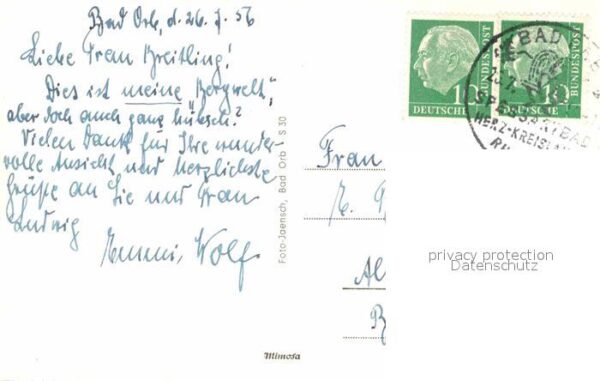 Bad Orb, d. 26. 7. 56
Liebe Frau Breitling!
Dies ist meine Bergwelt,
aber doch auch ganz hübsch?
Vielen Dank für Ihre wunder-
volle Ansicht und herzlichste
Grüße an Sie und Frau
Ludwig
Emmi Wolf.
Foto-Jaensch, Bad Orb S 30
Mimosa
10 BUNDESPOST
DEUTSCHE
10 BUNDESPOST
DEUTSCHE
BAD
SPESSARTBAD
HERZ-KREISL
Frau
Al
B
privacy protection
Datenschutz